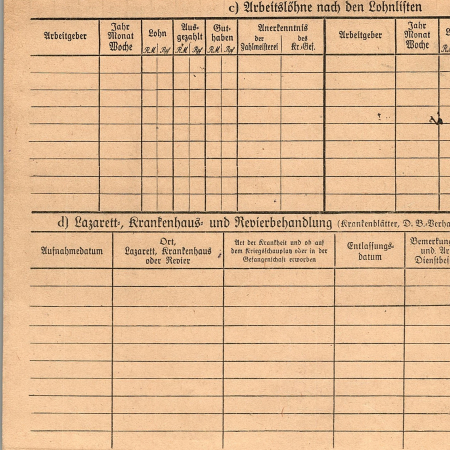 c) Arbeitslöhne nach den Lohnlisten
Arbeitgeber
Jahr
Monat
Woche
Lohn
RM Rpf
Aus-
gezahlt
RM Rpf
Gut-
haben
RM Rpf
Anerkenntnis
der
Zahlmeisterei
des
Kr.-Gef.
Arbeitgeber
Jahr
Monat
Woche
d) Lazarett-, Krankenhaus- und Revierbehandlung (Krankenblätter, D. B.-Verha
Aufnahmedatum
Ort,
Lazarett, Krankenhaus
oder Revier
Art der Krankheit und ob auf
dem Kriegsschauplatz oder in der
Gefangenschaft erworben
Entlassungs-
datum
Bemerkung
und Ar
Dienstbef